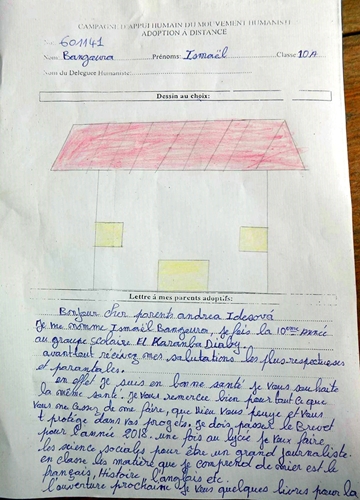 CAMPAGNE D'APPUI HUMAIN DU MOUVEMENT HUMANISTE
ADOPTION A DISTANCE
601141
Nom: Bangoura Prénoms: Ismaël Classe 10A
Nom du Delegue Humaniste:
Dessin au choix:
Lettre à mes parents adoptifs:
Bonjour cher parents andrea Idesová
Je me nomme Ismaël Bangoura, je fais la 10eme année
au groupe scolaire El Karamba Diaby.
avant tout recevez mes salutations les plus respectueuses
et parantales.
en effet je suis en bonne santé je vous souhaite
la même santé. Je vous remercie bien pour tout ce que
vous me de faire, que Dieu vous paye et vous
protège dans vos projets. Je dois passer le Brevet
pour l'année 2018. une fois au lycée je veux faire
les science socials pour être un grand journaliste.
en classe les matière que je comprend de mier est le
français, Histoire, l'anglais etc.
l'ouverture prochaine je veux quelques livres pour la